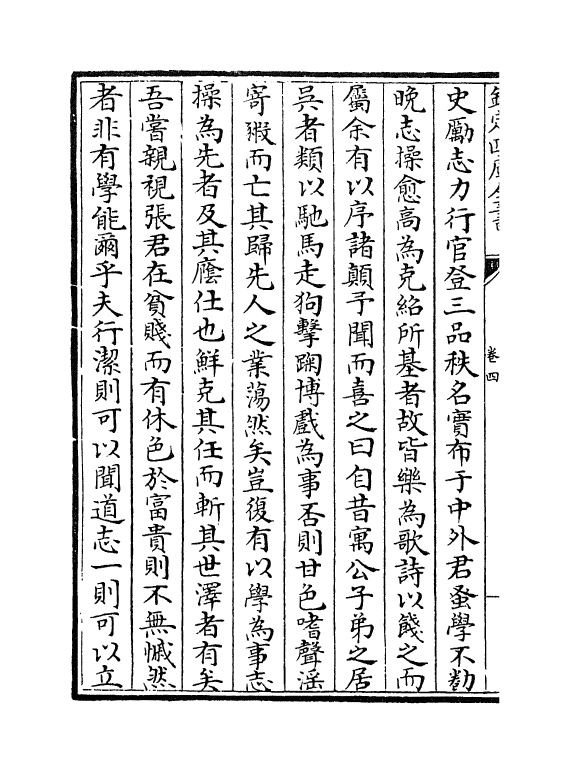 欽定四庫全書
卷四
史勵志力行官登三品秩名實布于中外君蚤學不勌
晚志操愈高為克紹所基者故皆樂為歌詩以餞之而
屬余有以序諸顛予聞而喜之曰自昔寓公子弟之居
吳者類以馳馬走狗擊踘博戲為事否則甘色嗜聲滛
寄豭而亡其歸先人之業蕩然矣豈復有以學為事志
操為先者及其廕仕也鮮克其任而斬其世澤者有矣
吾嘗親視張君在貧賤而有休色於富貴則不無慽然
者非有學能爾乎夫行潔則可以聞道志一則可以立